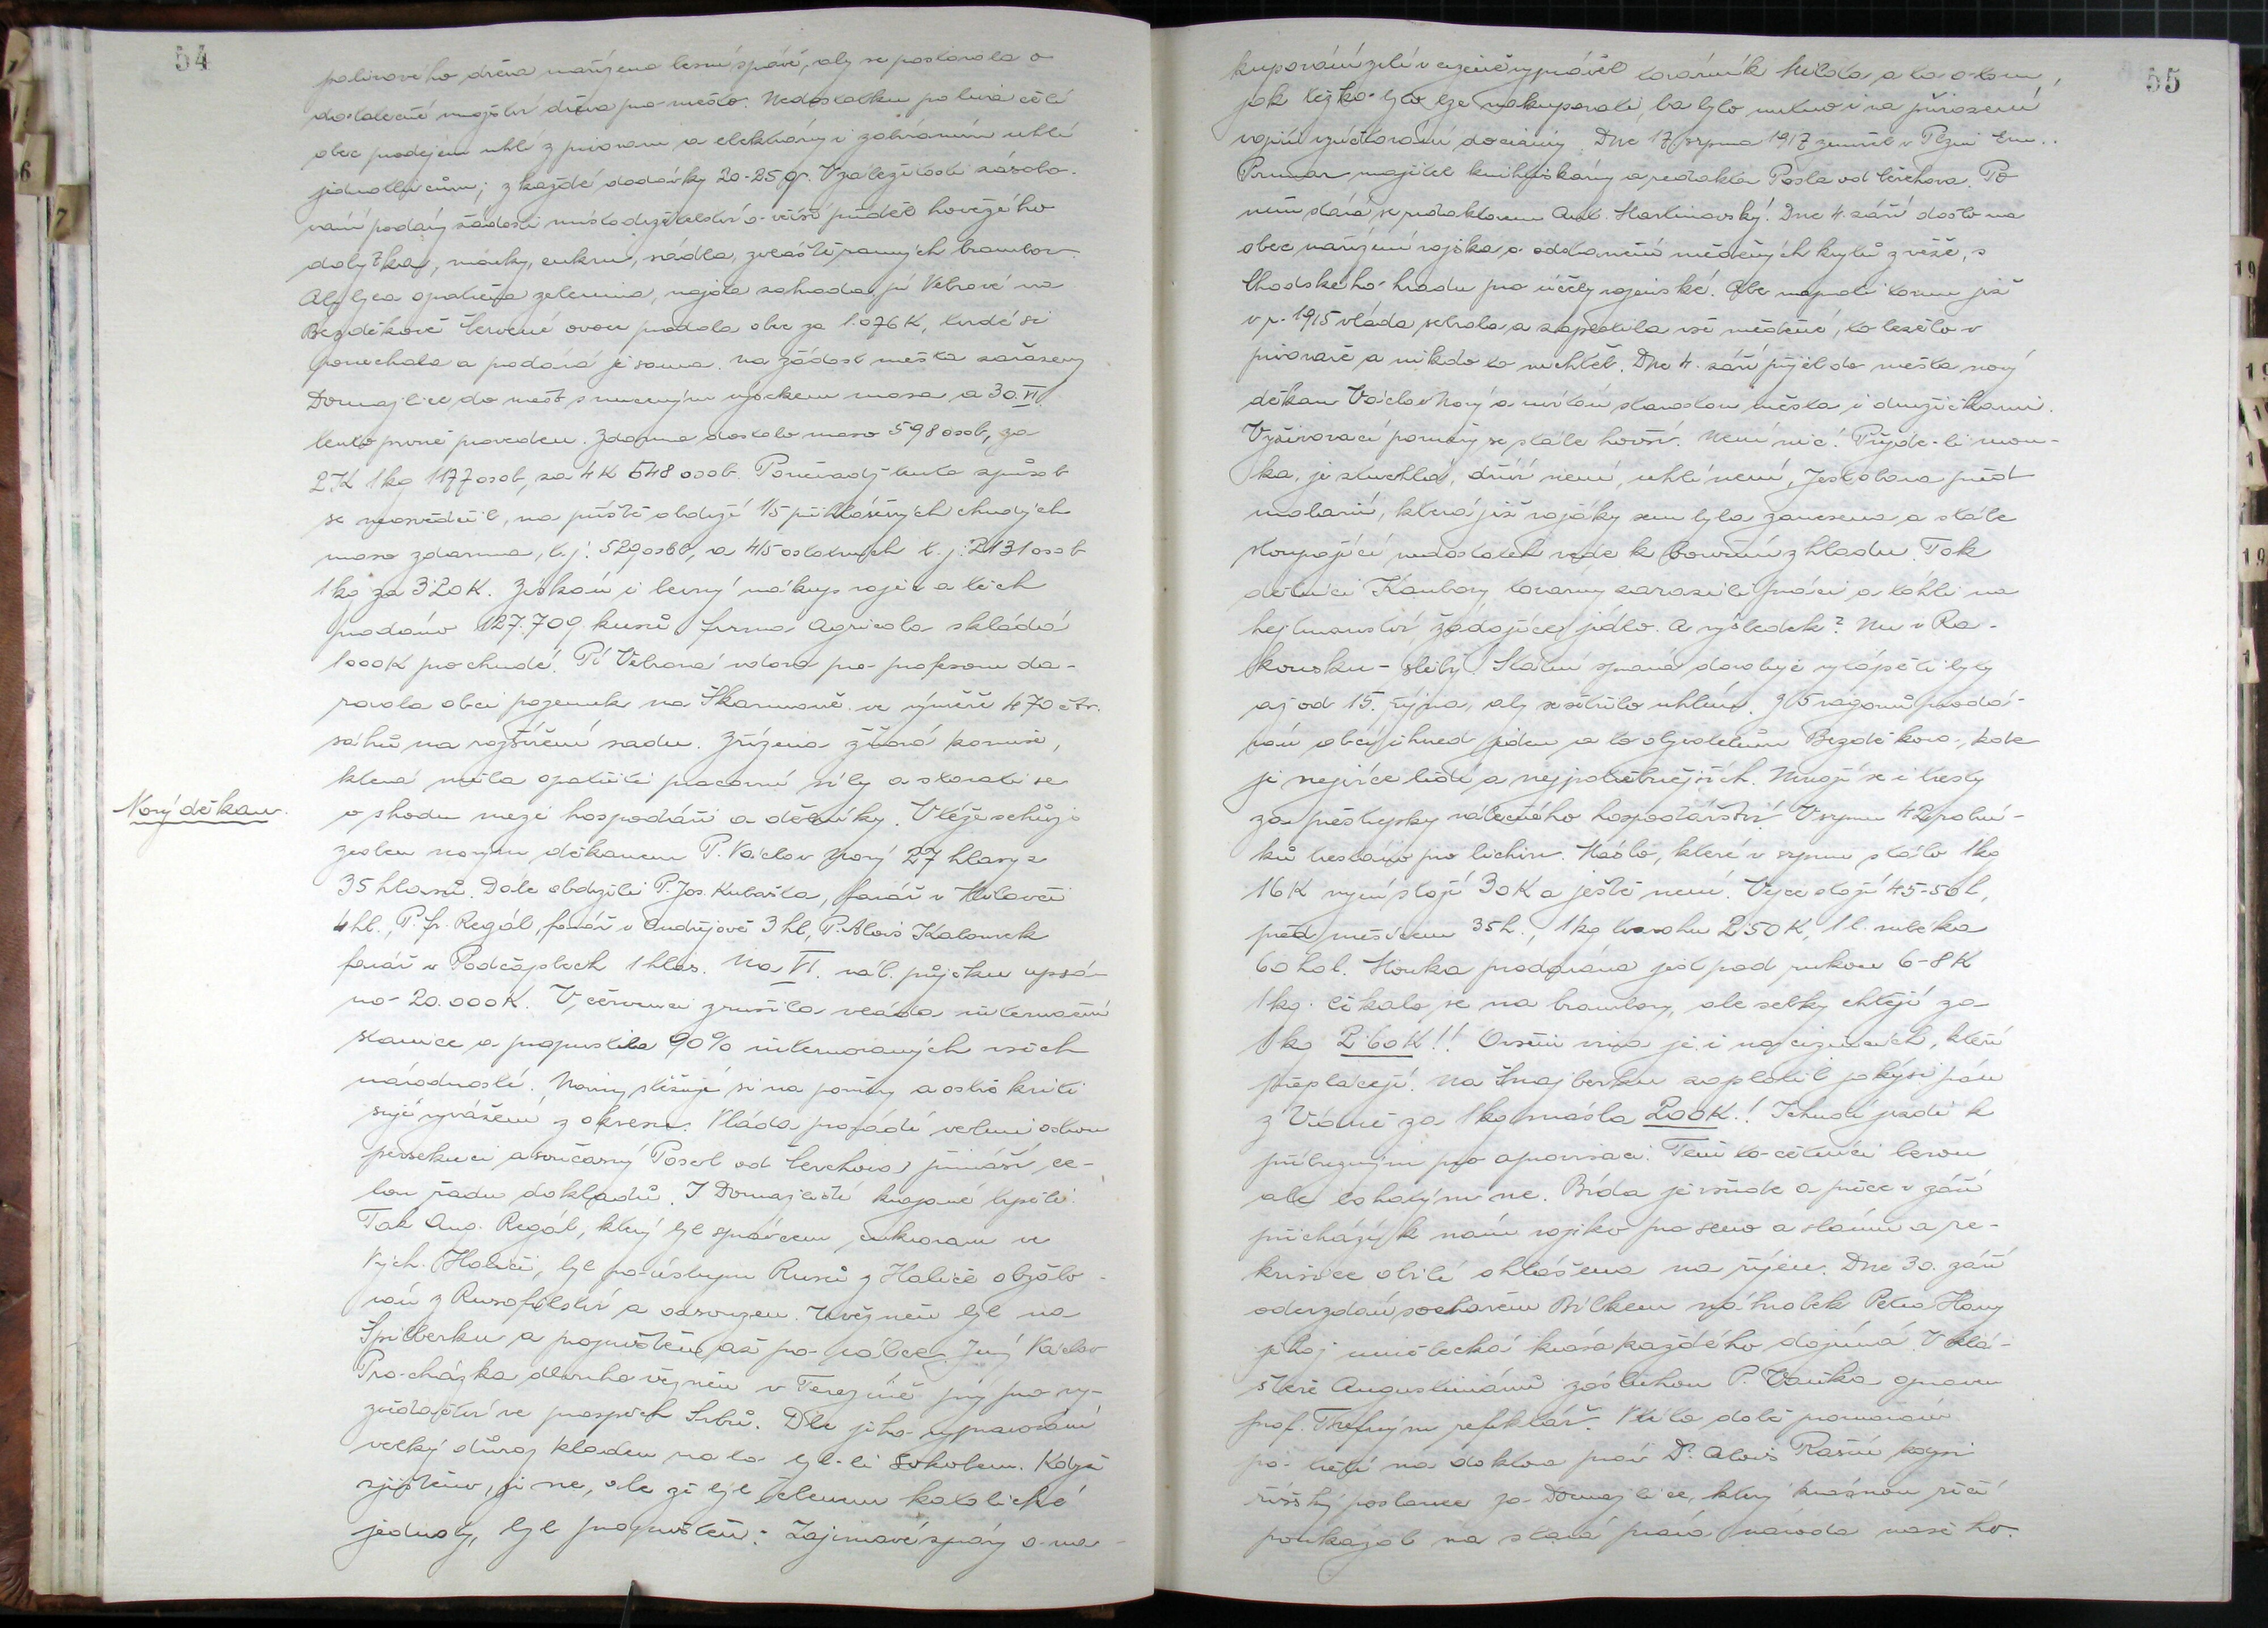 54
palivového dřeva nařízeno lesní správě, aby se postarala o
dostatečné množství dřeva pro město. Nedostatku paliva čelí
obec prodejem uhlí z pivovaru a elektrárny i
jednotlivcům, z každé dodávky 20-25 q. V záležitosti zásobo-
vání podány žádosti místodržitelství o větší příděl hovězího
dobytka, mouky, cukru, sádla, zvláště raných brambor.
Aby byla opatřena zelenina, najata zahrada pí Vebrové na
Bezděkově. Červené ovoce prodala obec za 1.076 K, tvrdé si
ponechala a prodává je sama. Na žádost města zařazeny
Domažlice do měst s nuceným výsekem masa a 30. VI.
tento prvně proveden. Zdarma dostalo maso 598 osob, za
2 K 1 kg 1177 osob, za 4 K 548 osob. Poněvadž tento způsob
se neosvědčil, na příště obdrží 1/5 přihlášených chudých
maso zdarma, t.j. 529 osob, a 4/5 ostatních t.j. 2131 osob
1 kg za 3'20 K. Získán i levný nákup vajec a těch
prodáno 127.709 kusů firma Agricola skládá
1000 K pro chudé. Pí Vebrová vdova po profesoru da-
rovala obci pozemek na Škarmaně ve výměře 470 čtv.
sáhů na rozšíření sadu. Zřízena žňová komise,
která měla opatřiti pracovní síly a starati se
Nový děkan.
o shodu mezi hospodáři a dělníky. V téže schůzi
zvolen novým děkanem P. Václav Nový 27 hlasy z
35 hlasů. Dále obdrželi P. Jos. Kubašta, farář v Milavči
4 hl., P. Fr. Regál, farář v Ondřejově 3 hl, P. Alois
farář v 1 hlas. Na VI. vál. půjčku upsá-
no 20.000 K. V červenci zrušila vláda internační
stanice a propustila 90% internovaných všech
národností. Noviny stěžují si na poměry a ostře kriti
sují vyvážení z okresu. Vláda provádí velmi ostrou
persekuci a současný Posel od Čerchova přináší ce-
lou řadu dokladů. I Domažličtí krajané trpěli.
Tak Aug. Regál, který byl správcem cukrovaru ve
Vých. Haliči, byl po ústupu Rusů z Haliče obžalo-
ván z Rusofilství a odsouzen. Uvězněn byl na
Špilberku a propuštěn až po válce. Jiný Václav
Procházka dlouho vězněn v Terezíně prý pro vy-
zvědačství ve prospěch Srbů. Dle jeho vypravování
velký důraz kladen na to byl-li Sokolem. Když
zjištěno, že ne, ale že byl členem katolické
jednoty, byl propuštěn. Zajímavé zprávy o na-
55
kupování zelí v cizině vyprávěl továrník a to o tom,
jak těžko bylo lze nakupovati, ba bylo nutno i na přivozené
vojín vyúčtování dociány. Dne 17. srpna 1917 zemřel v Plzni Em.
Prunar majitel knihtiskárny a redaktor Posla od Čerchova. Po
něm stává se redaktorem Ant. Martinovský. Dne 4. září došlo na
obec nařízení vojska o odstranění měděných krytů z věže, s
Chodského hradu pro účely vojenské. Ale naproti tomu již
v r. 1915 vláda sebrala a zaplatila vše měděné, to leželo v
pivovaře a nikdo to nechtěl. Dne 4. září přijel do města nový
děkan Václav Nový a uvítán starostou města i družičkami.
Vyživovací poměry se stále horší. Není nic! Přijde-li mou-
ka, je stuchlá, dříví není, uhlí není. Jest obava před
malarií, která již vojáky sem byla zanesena a stále
stoupající nedostatek vede k bouření z hladu. Tak
dělníci Kauborg továrny zarazili práci a táhli na
hejtmanství žádajíce jídlo. A výsledek? Nu v Ra-
kousku - sliby! Státní správa dovoluje vytápěti byty
až od 15. října, aby se šetřilo uhlím. Z 5 vagonů prodá-
ván obcí ihned jeden a to obyvatelům Bezděkova, kde
je nejvíce lidí a nejpotřebnějších. Množí se i tresty
za přestupky válečného hospodářství. V srpnu 42 rolní-
ků trestáno pro lichvu. Máslo, které v srpnu stálo 1 kg
16 K nyní stojí 30 K a ještě není. Vejce stojí 45-50 h,
před měsícem 35 h., 1 kg tvarohu 2'50 K, 1 l. mléka
60 hal. Mouka prodávána jest pod rukou 6-8 K
1 kg. Čekalo se na brambory, ale selky chtějí za
1 kg 2'60 K!! Ovšem vina je i na cizincích, kteří
přeplácejí. Na Šnajberku zaplatil jakýsi pán
z Vídně za 1 kg másla 200 K.! Ichudí jezdí k
příbuzným pro aprovisaci. Těm to četníci berou
ale bohatým ne. Bída je všude a přece v září
přichází k nám vojsko pro seno a slámu a re-
kvisice obilí ohlášena na říjen. Dne 30. září
odevzdán sochařem Bílkem náhrobek Petra Hany
jehož umělecká krása každého dojímá. V klá-
šteře Augustiniánů zásluhou P. Vaňka opraven
prof. refektář. Číslo dolé promován
po třetí na doktora práv Dr. Alois Rašín kdysi
říšský poslanec za Domažlice, který krásnou řečí
poukázal na stará práva národa našeho.